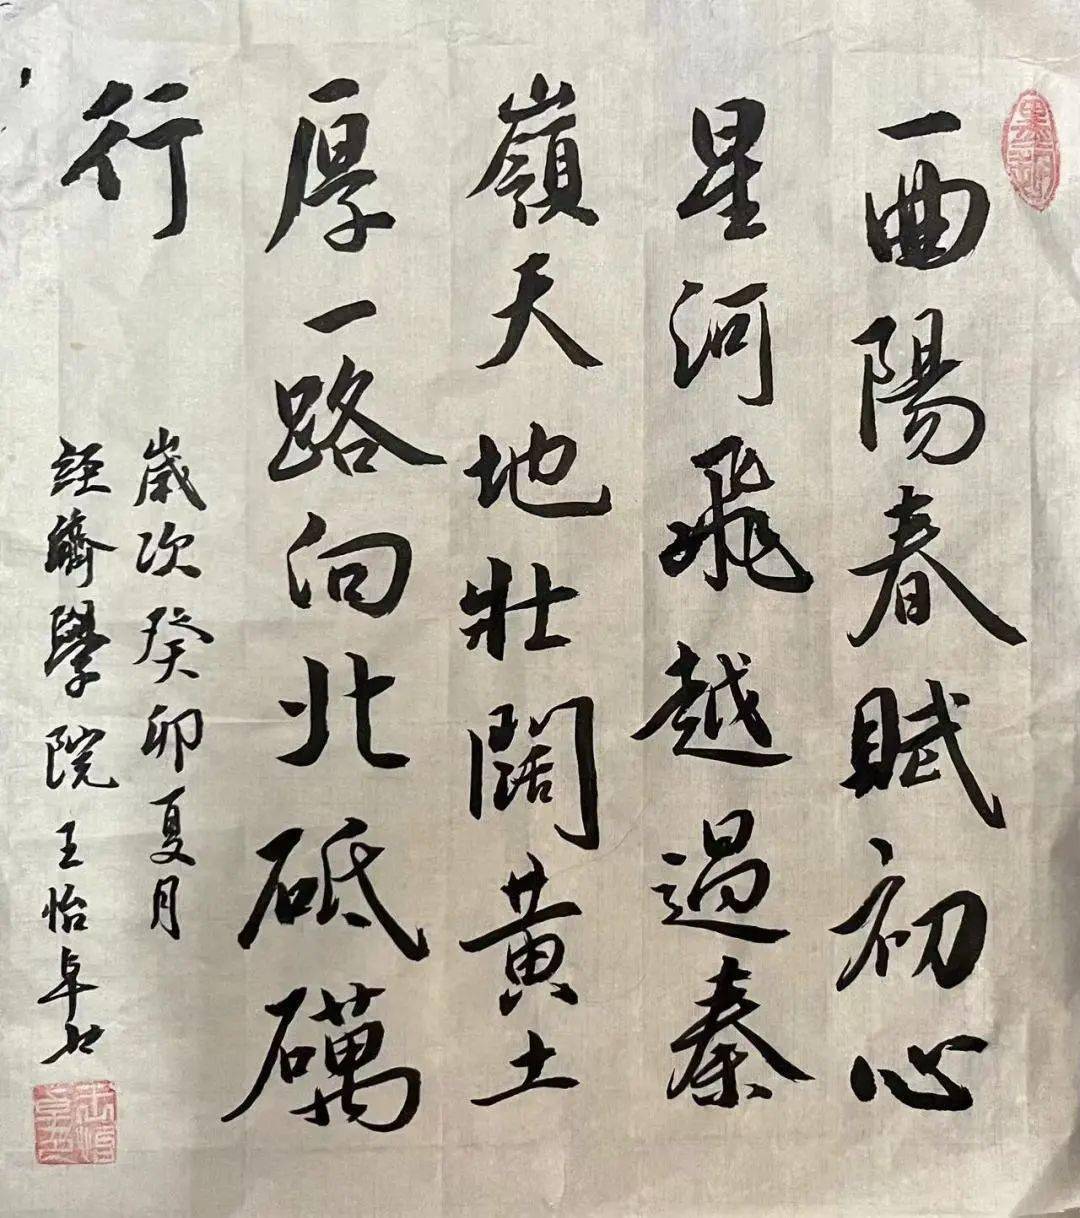 一曲陽春賦初心
星河飛越過秦
嶺天地壯闊黄土
厚一路向北砥礪
行
歲次癸卯夏月
經濟學院王怡卓书